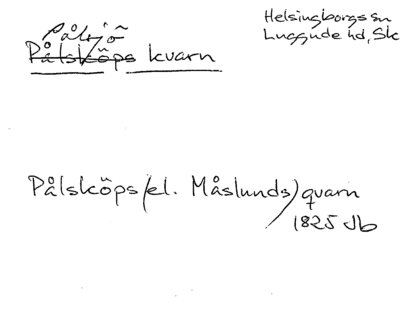 Pålsjö
Pålsköps kvarn
Helsingborgs sn
Luggude hd, Sk
Pålsköps (el. Måslunds) qvarn
1825 Jb